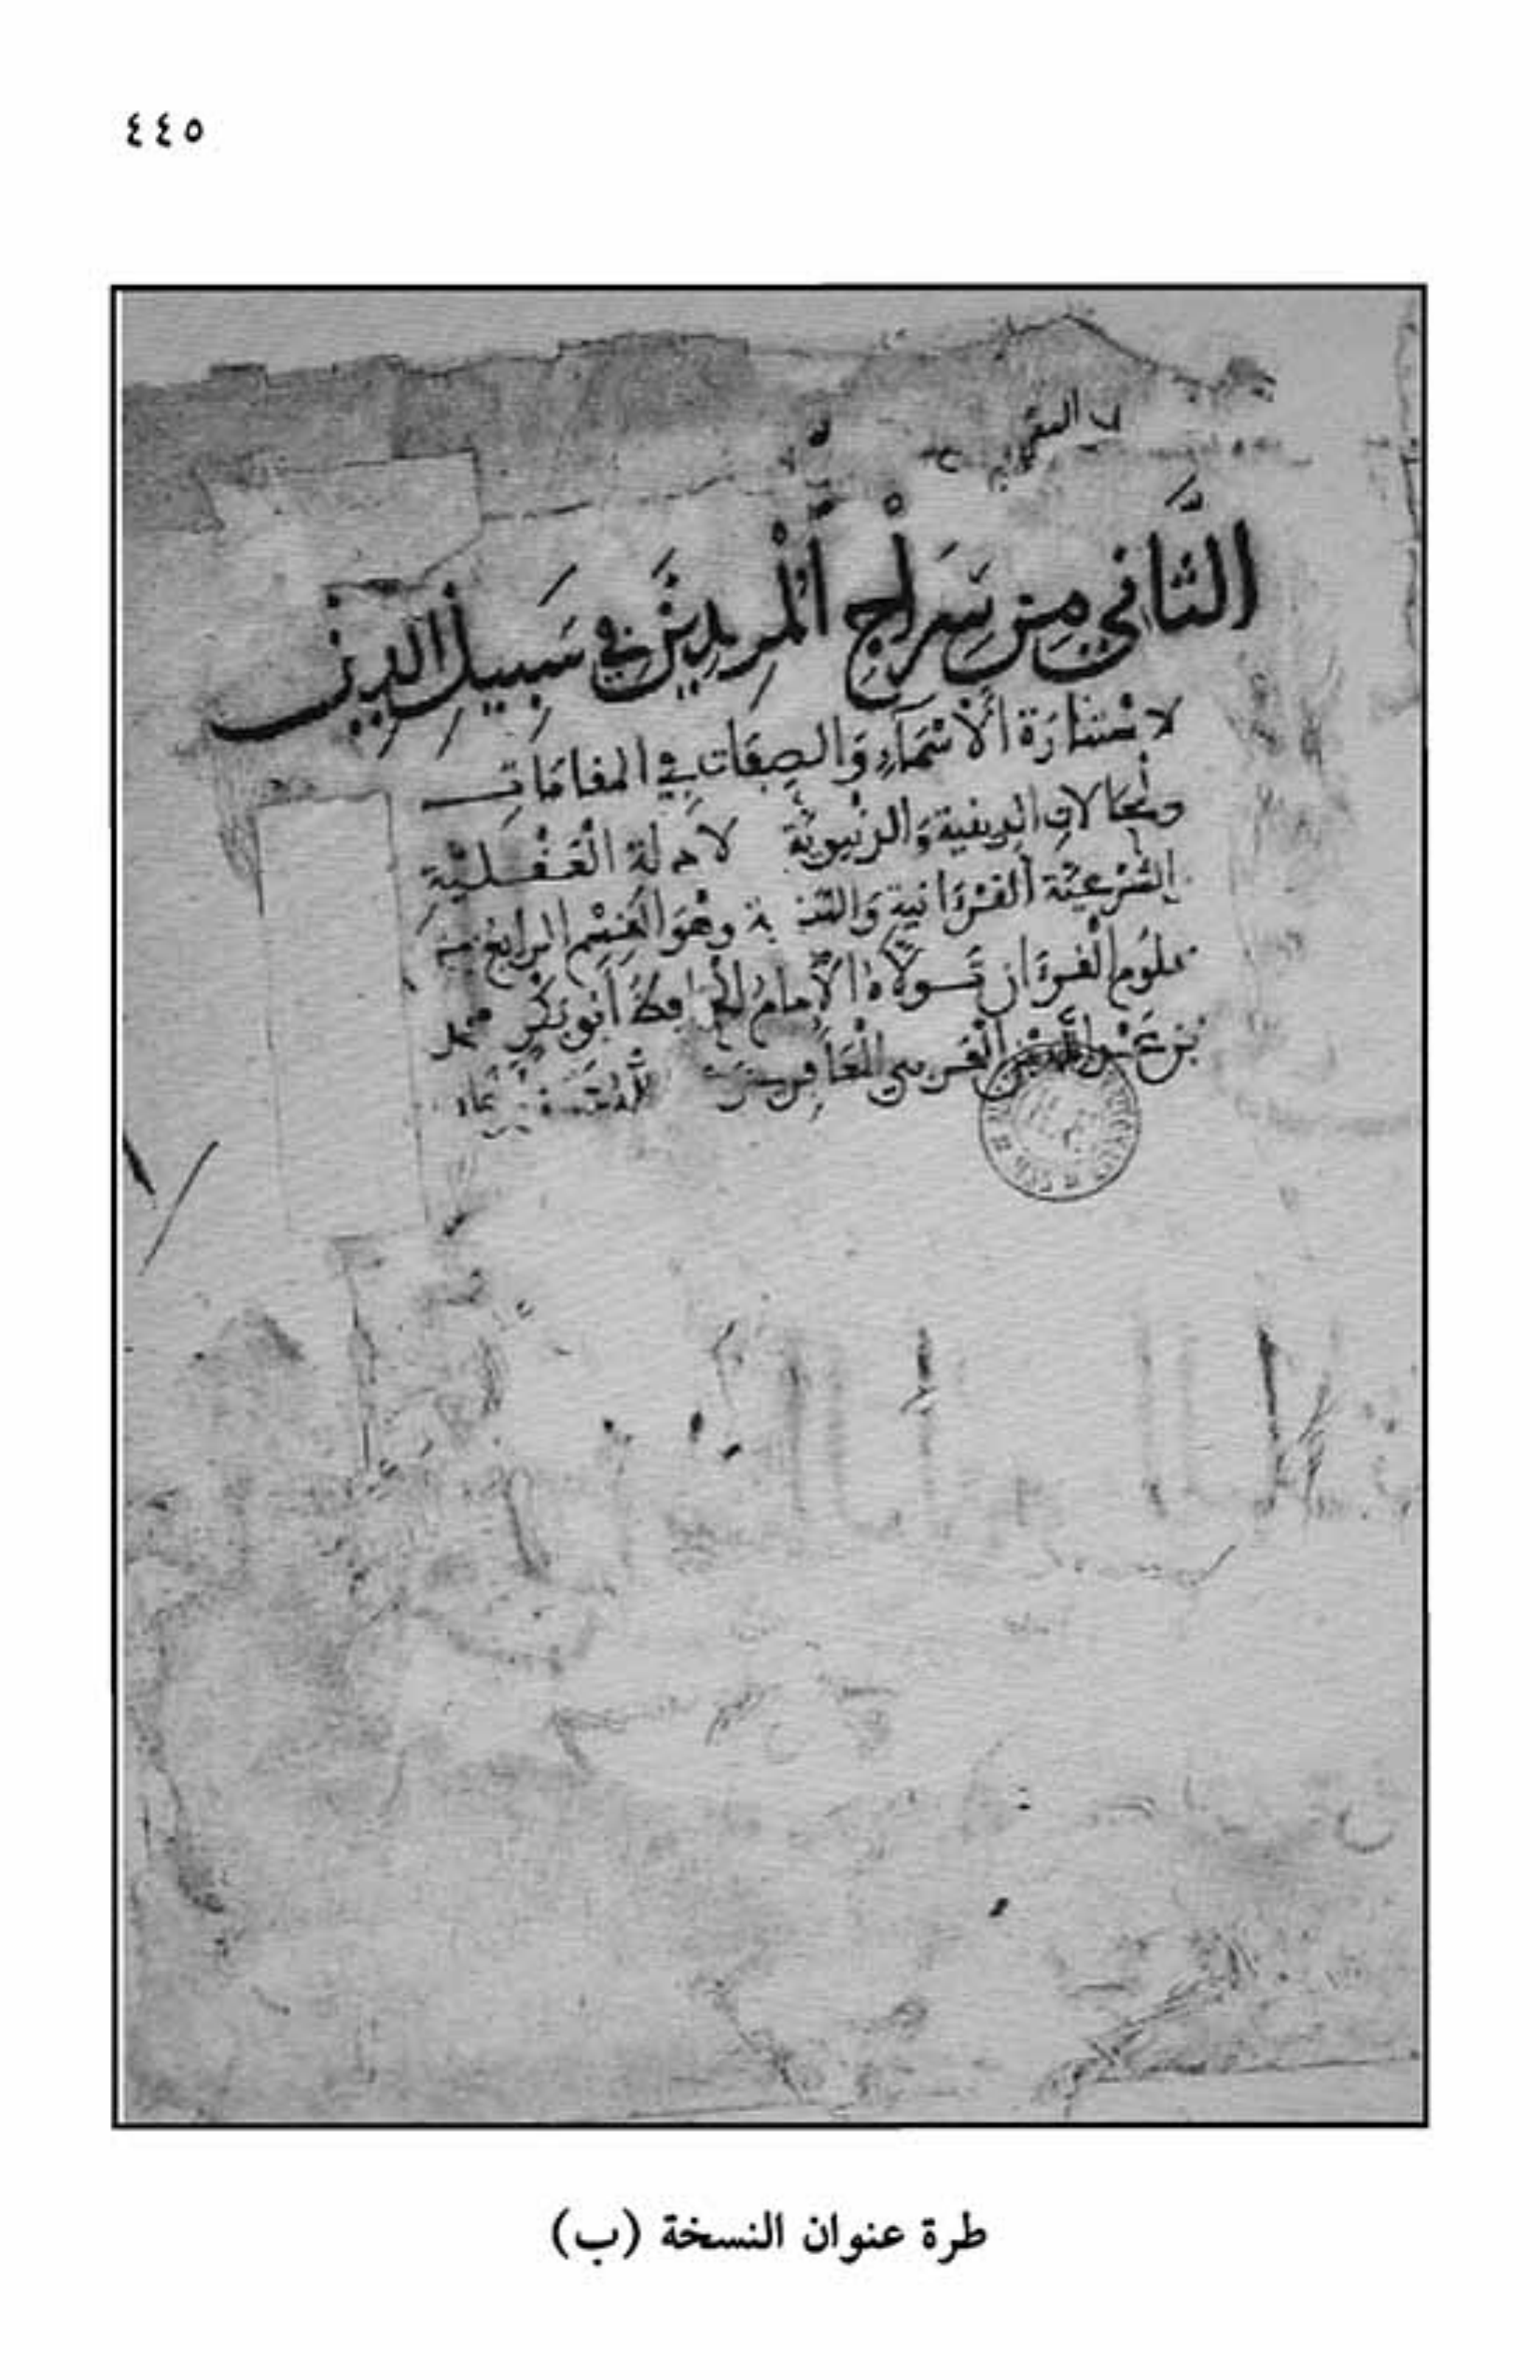 ٤٤٥
الثَّاني من سَرَاجِ الْمُرِيدِينَ فِي سَبِيلِ الدِينِ
لاسْتنَارَة الأَسْمَاءِ وَالصِفَات فِي المقامَاتِ
والحَالاتِ الدينية وَالدنْيوية لادلة الْعَقْليَّةِ
الشرْعيّة القرْءَانية وَالسّنـ ـة وهْوَ الْقِسْم الرابع من
علوُم الْقرءَان تَـولاَّهُ الأمامُ الحَافظُ أَبو بَكْرٍ محمد
بْن عَبْد اللَّه بْن الْعَربي الْمَعَافِري
طرة عنوان النسخة (ب)